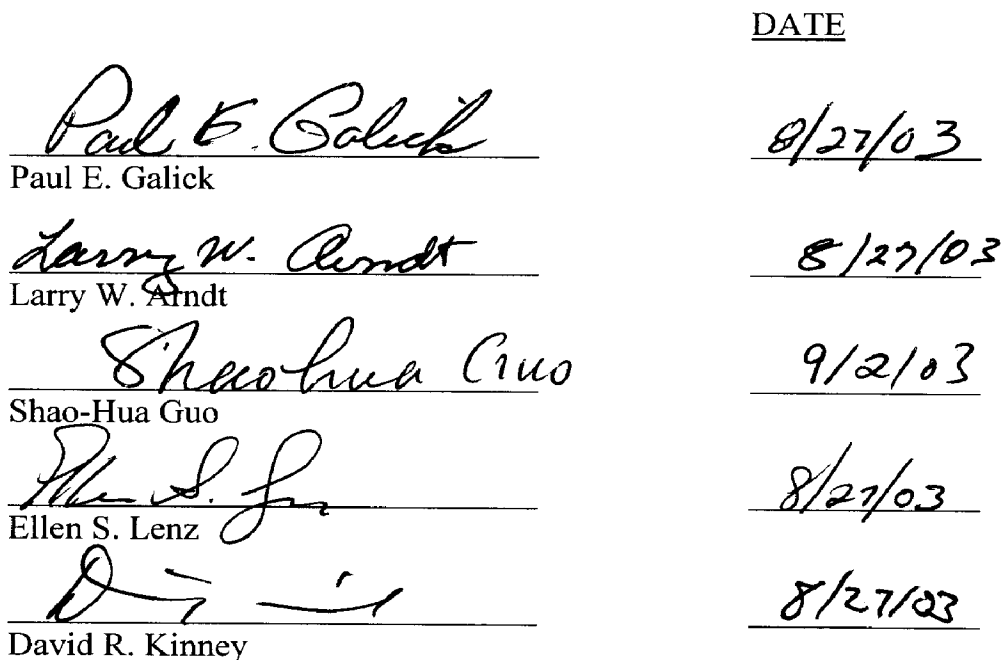 DATE
Paul E. Galick 8/27/03
Paul E. Galick
Larry W. Arndt 8/27/03
Larry W. Arndt
Shaohua Guo 9/2/03
Shao-Hua Guo
Ellen S. 8/27/03
Ellen S. Lenz
8/27/03
David R. Kinney